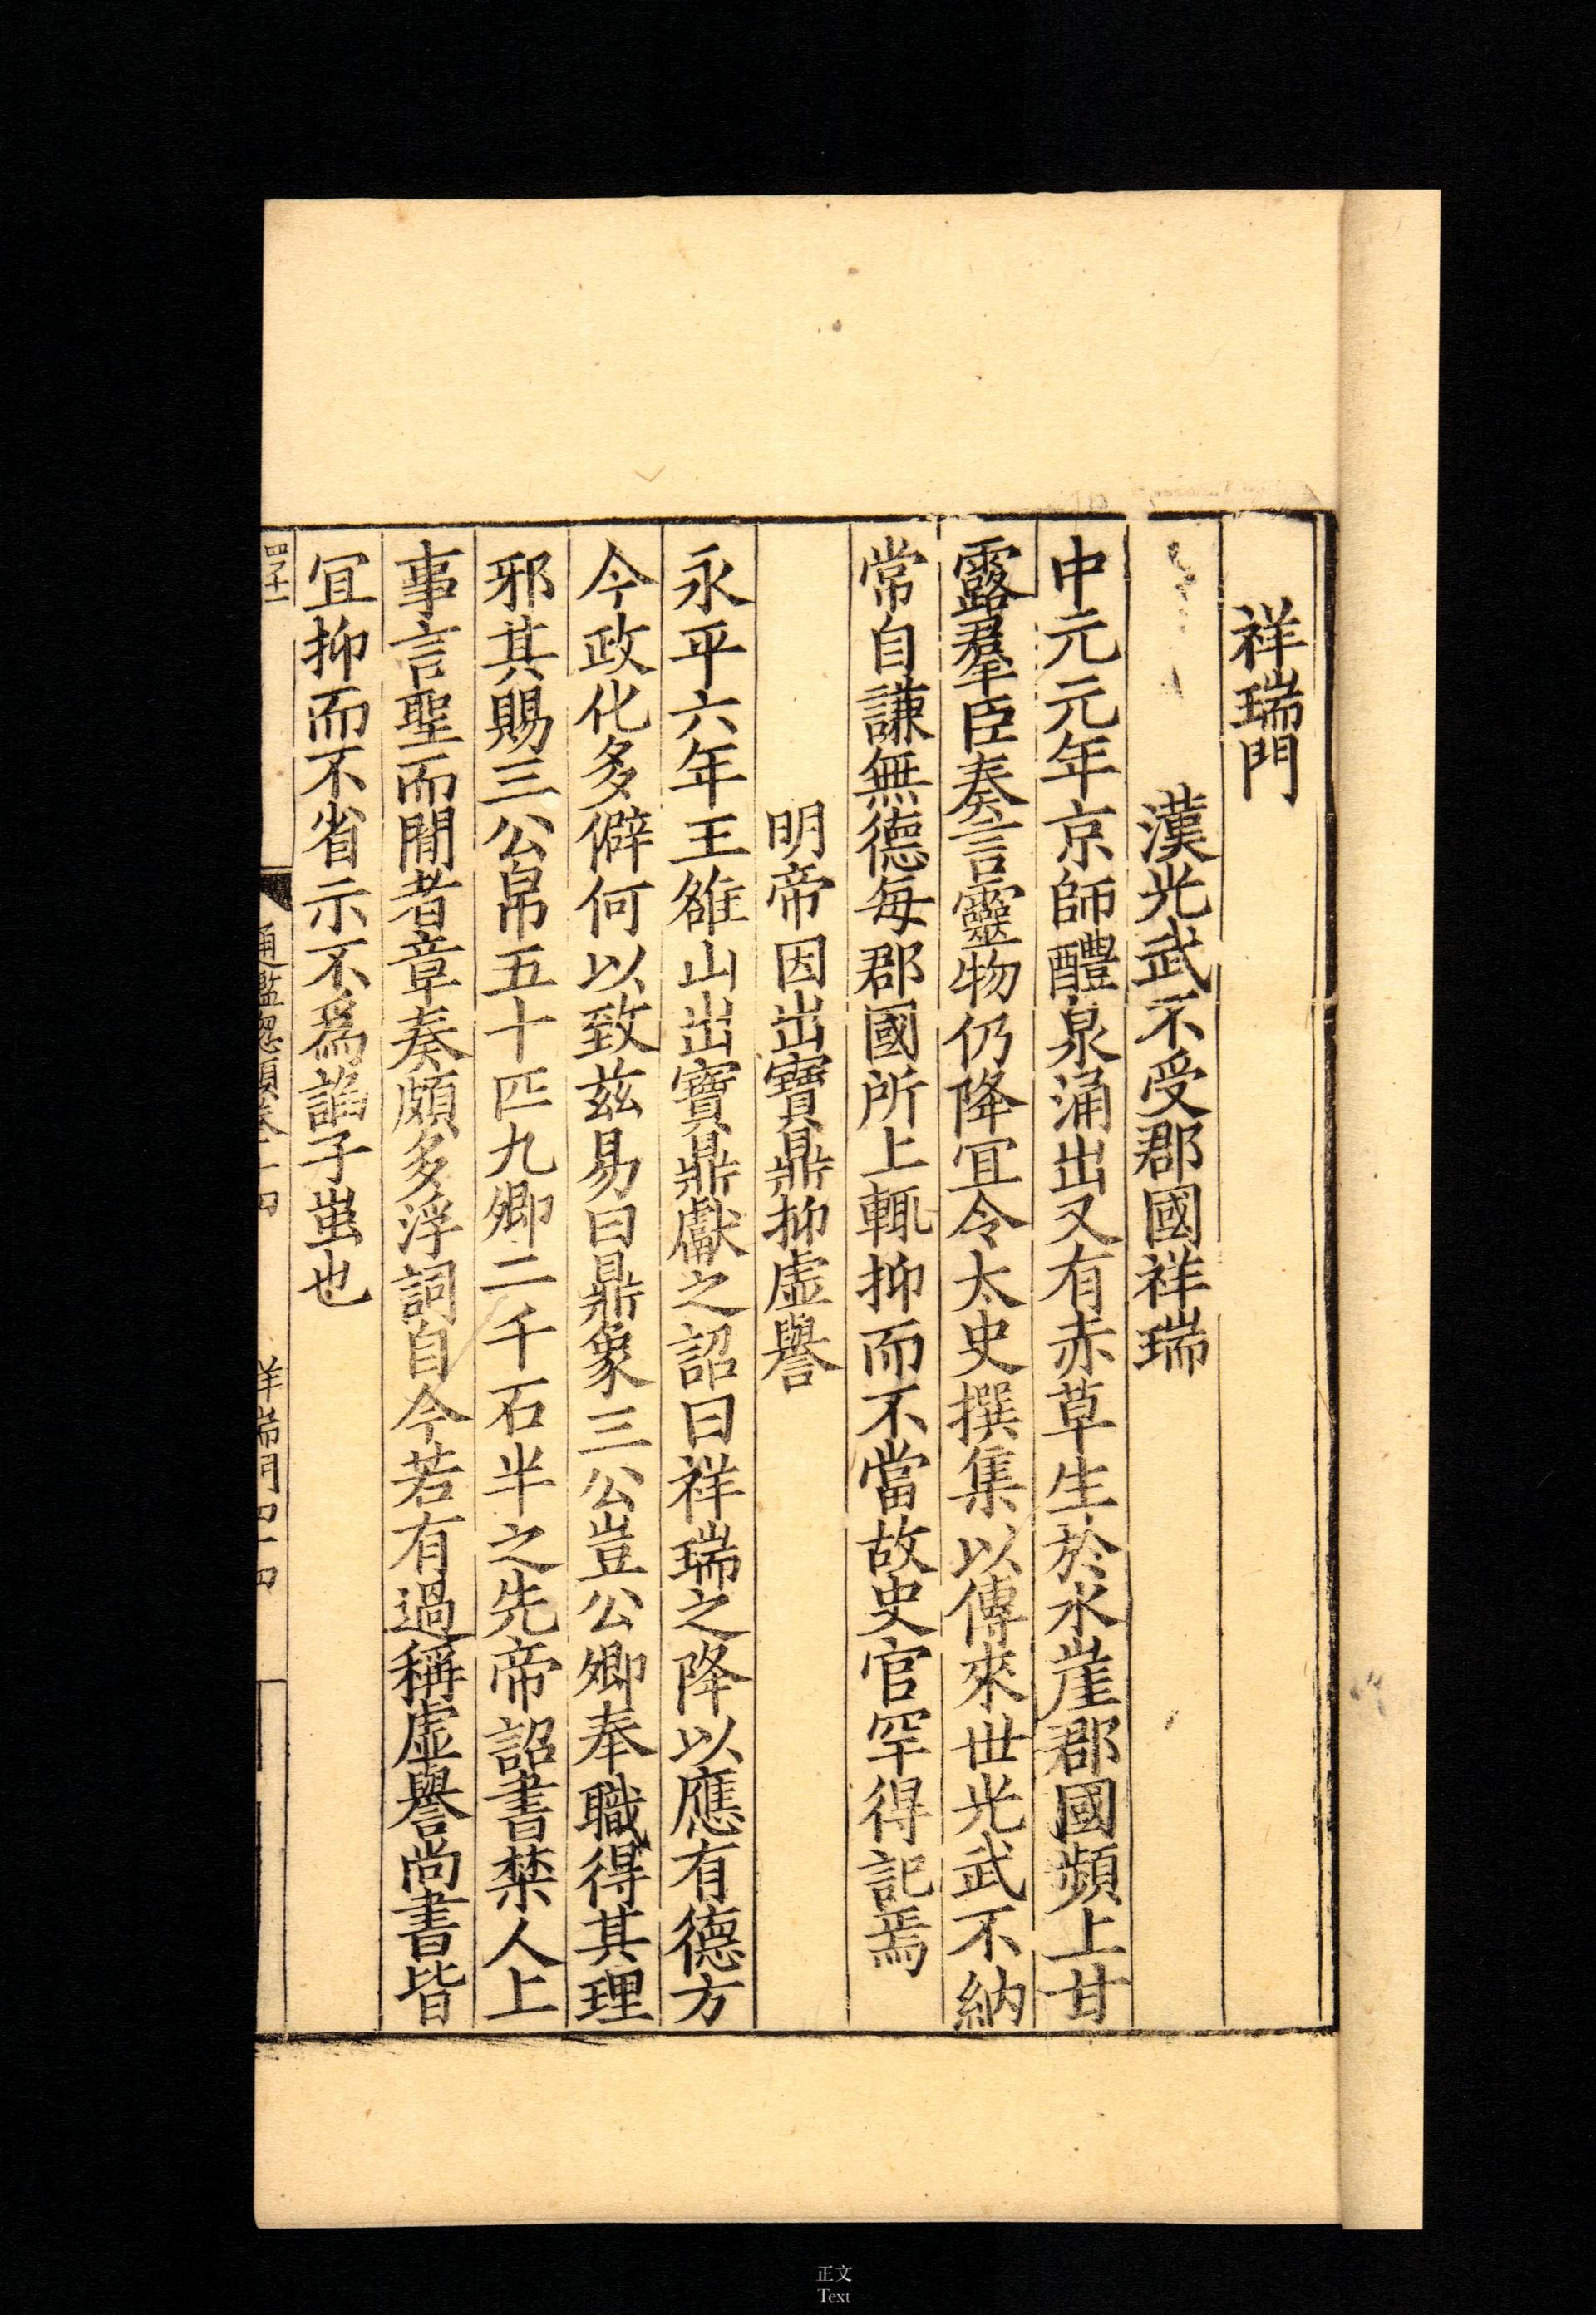 祥瑞門
漢光武不受郡國祥瑞
中元元年京師醴泉涌出又有赤草生於水崖郡國頻上甘
露羣臣奏言靈物仍降冝令太史撰集以傳來世光武不納
常自謙無德每郡國所上輒抑而不當故史官罕得記焉
明帝因出寶鼎抑虛譽
永平六年王雒山出寶鼎獻之詔曰祥瑞之降以應有德方
今政化多僻何以致兹易曰鼎象三公豈公卿奉職得其理
邪其賜三公帛五十匹九卿二千石半之先帝詔書禁人上
事言聖而間者章奏頗多浮詞自今若有過稱虛譽尚書皆
冝抑而不省示不爲諂子蚩也
正文
Text